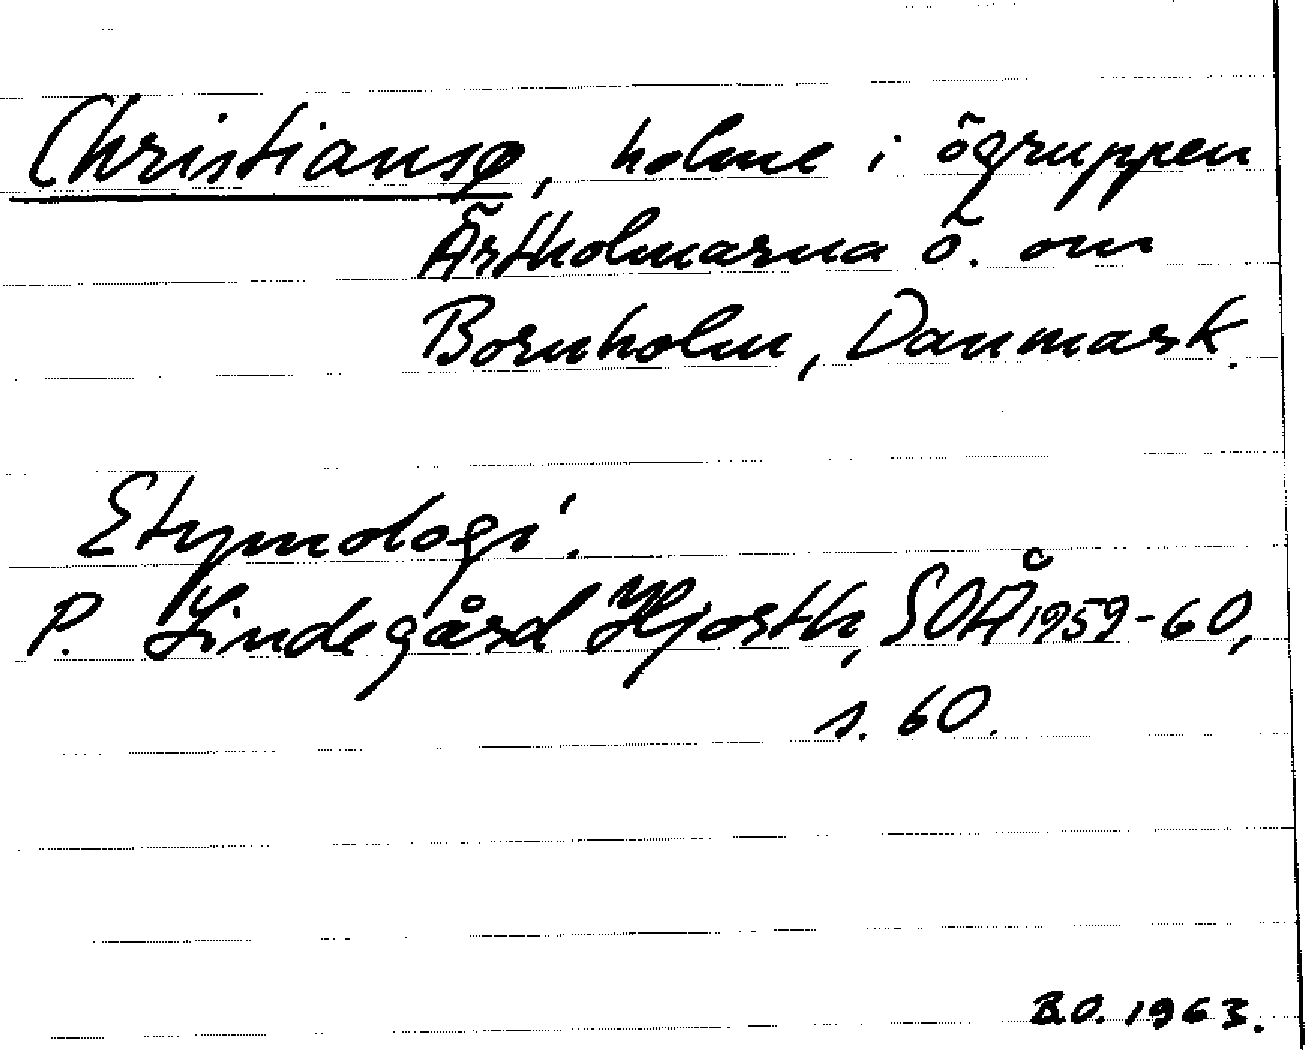 Christiansø, holme i ögruppen
Ärtholmarna ö. om
Bornholm, Danmark.
Etymologi:
P. Lindegård Hjorth, SOÅ 1959-60,
s. 60.
B.O. 1963.